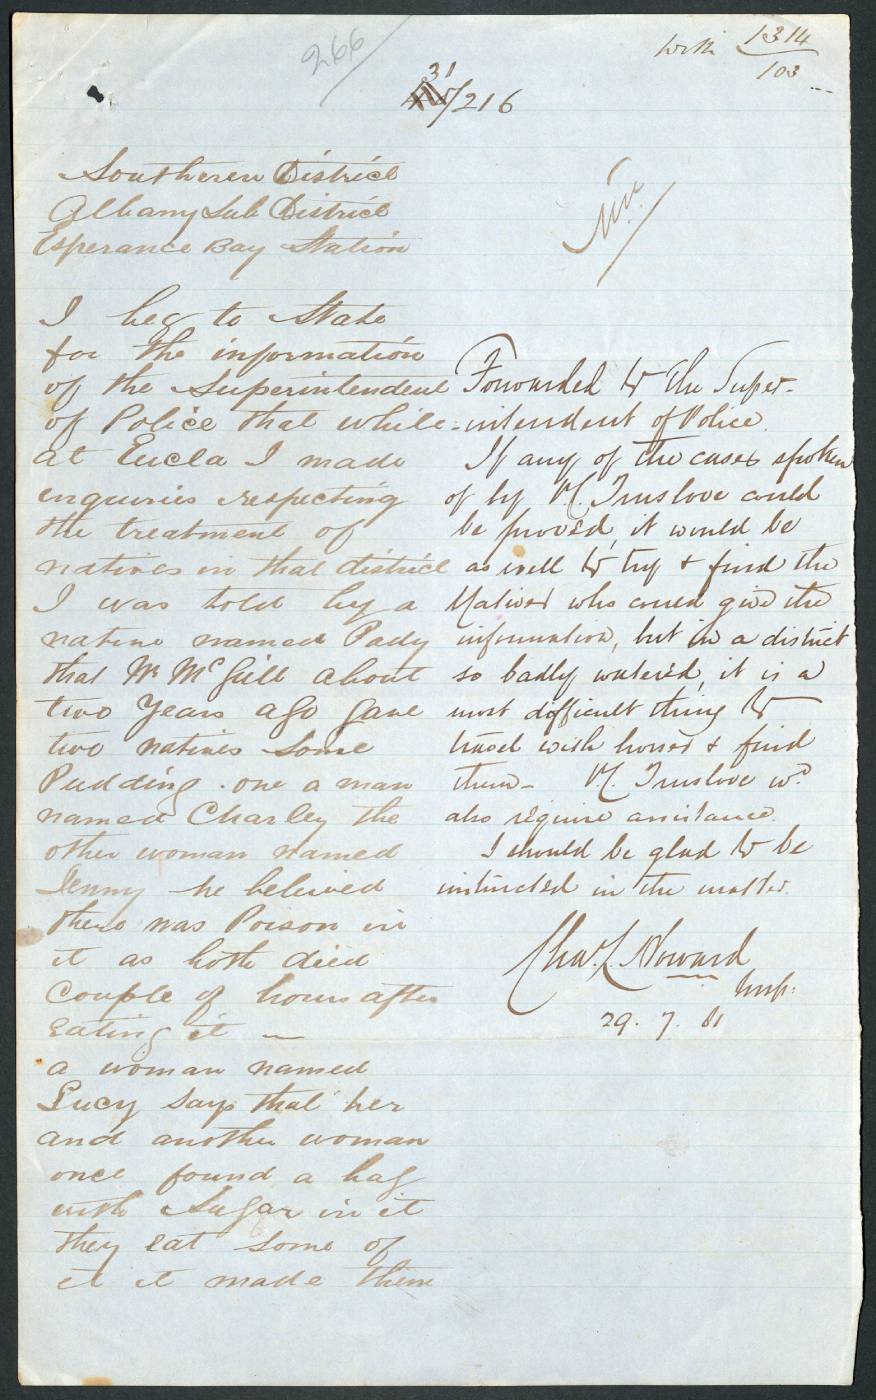 266
With 1314
103
31/216
Southeren District
Albany Sub District
Esperance Bay Station
I beg to State
for the information
of the Superintendent
of Police that while
at Eucla I made
enquiries respecting
the treatment of
natives in that district
I was told by a
native named Pady
that Mr McGill about
two Years ago gave
two natives Some
Pudding . one a man
named Charley the
other woman named
Jenny he beleived
there was Poison in
it as both died
Couple of hours after
Eating it —
a woman named
Lucy Says that her
and another woman
once found a bag
with Sugar in it
they Eat Some of
it it made them
Forwarded to the Super-
-intendent of Police.
If any of the cases spoken
of by P.C. Truslove could
be proved, it would be
as well to try & find the
Natives who could give the
information, but in a district
so badly watered, it is a
most difficult thing to
travel with horses & find
them - P.C. Truslove wd
also require assistance.
I should be glad to be
instructed in the matter.
Chas. L. Howard
Insp.
29. 7. 81